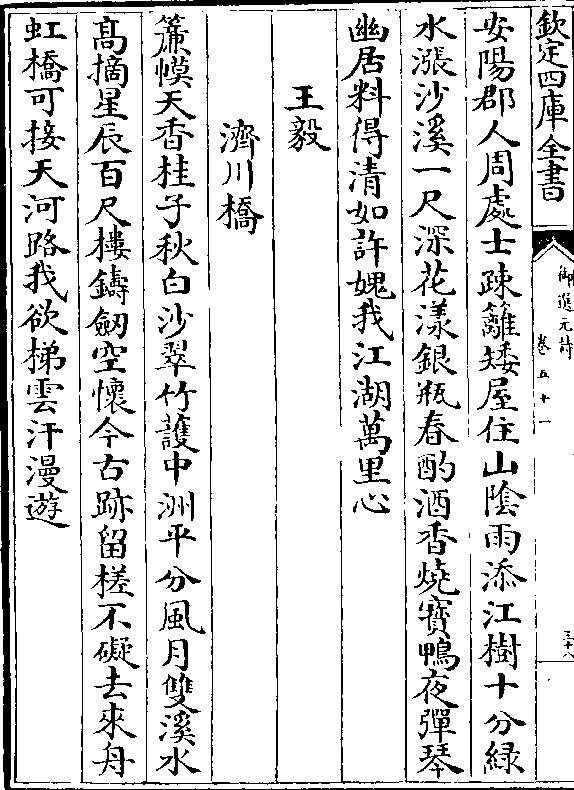 欽定四庫全書
御選元詩
卷五十一
三十八
安陽郡人周處士疎籬矮屋住山陰雨添江樹十分緑
水漲沙溪一尺深花漾銀瓶春酌酒香燒寳鴨夜彈琴
幽居料得清如許媿我江湖萬里心
王毅
濟川橋
簾幙天香桂子秋白沙翠竹護中洲平分風月雙溪水
髙摘星辰百尺樓鑄劒空懷今古跡留槎不礙去來舟
虹橋可接天河路我欲梯雲汗漫遊